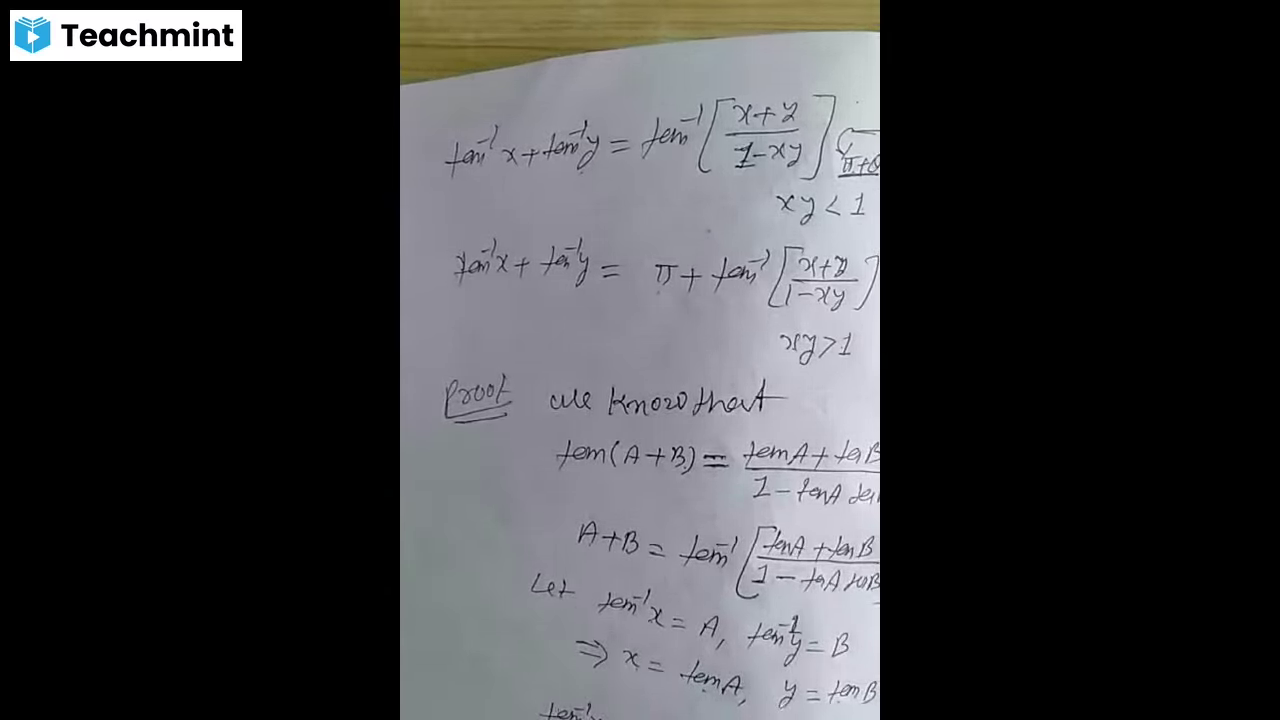 Teachmint
tan⁻¹x + tan⁻¹y = tan⁻¹[(x+y)/(1-xy)]
π+θ
xy < 1
tan⁻¹x + tan⁻¹y = π + tan⁻¹[(x+y)/(1-xy)]
xy > 1
Proof We know that
tan(A+B) = (tanA + tanB)/(1 - tanA tan
A+B = tan⁻¹[(tanA + tanB)/(1 - tanA tanB)
Let tan⁻¹x = A, tan⁻¹y = B
⇒ x = tanA, y = tanB